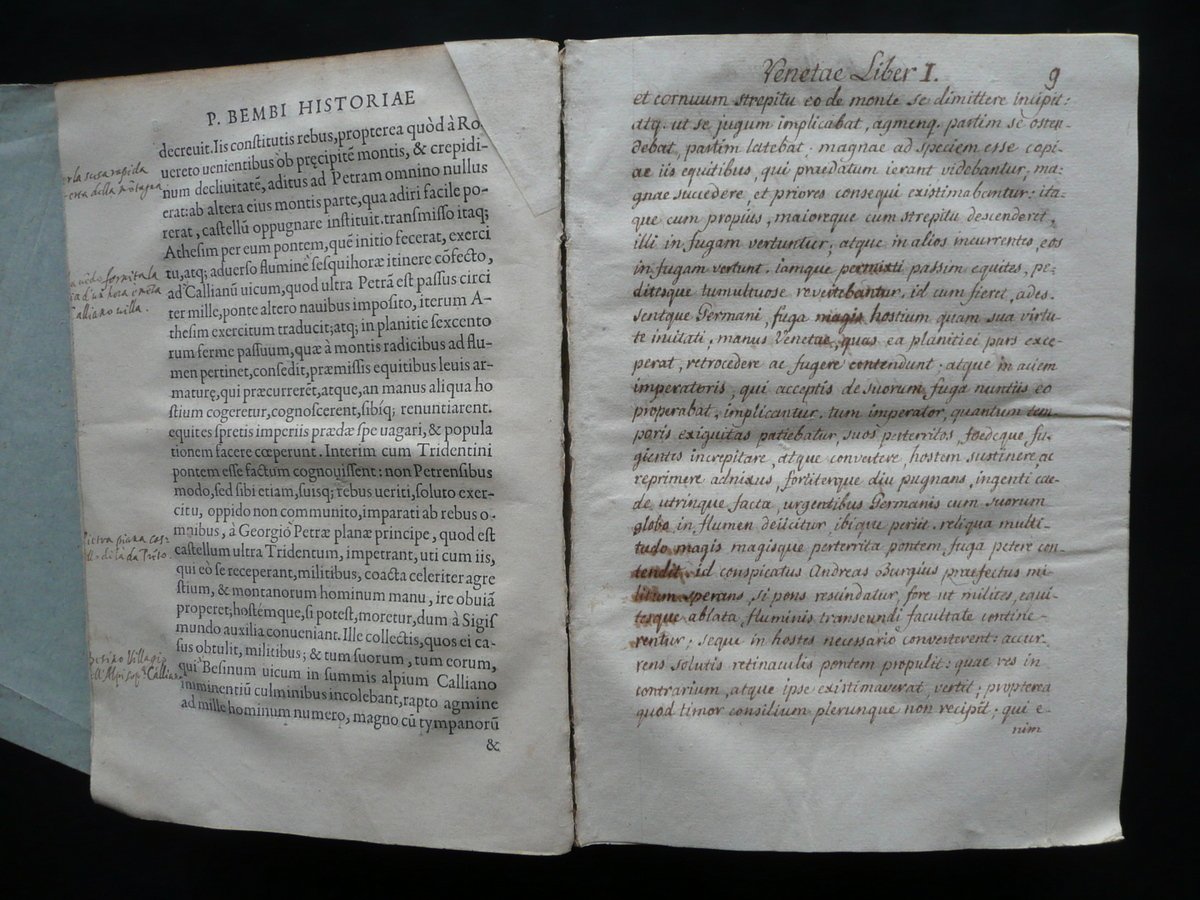 P. BEMBI HISTORIAE
decreuit. Iis constitutis rebus, propterea quòd à Ro
uereto uenientibus ob pręcipitē montis, & crepidi-
num decliuitatē, aditus ad Petram omnino nullus
erat: ab altera eius montis parte, qua adiri facile po-
rerat, castellū oppugnare instituit. transmisso itaq;
Athesim per eum pontem, quē initio fecerat, exerci
tu, atq; aduerso flumine sesquihoræ itinere cōfecto,
ad Callianū uicum, quod ultra Petrā est passus circi
ter mille, ponte altero nauibus imposito, iterum A-
thesim exercitum traducit; atq; in planitie sexcento
rum ferme passuum, quæ à montis radicibus ad flu-
men pertinet, consedit, præmissis equitibus leuis ar-
maturę, qui præcurrerēt, atque, an manus aliqua ho
stium cogeretur, cognoscerent, sibíq; renuntiarent.
equites spretis imperiis prædæ spe uagari, & popula
tionem facere cœperunt. Interim cum Tridentini
pontem esse factum cognouissent: non Petrensibus
modo, sed sibi etiam, suisq; rebus ueriti, soluto exer-
citu, oppido non communito, imparati ab rebus o-
mnibus, à Georgio Petræ planæ principe, quod est
castellum ultra Tridentum, impetrant, uti cum iis,
qui eò se receperant, militibus, coacta celeriter agre
stium, & montanorum hominum manu, ire obuiā
properet; hostémque, si potest, moretur, dum à Sigis
mundo auxilia conueniant. Ille collectis, quos ei ca-
sus obtulit, militibus; & tum suorum, tum eorum,
qui Besinum uicum in summis alpium Calliano
imminentiū culminibus incolebant, rapto agmine
ad mille hominum numero, magno cū tympanorū
&
la susa rapida
della mōtagna
fornita la
d'un hora e meza
Calliano villa.
Pietra piana cas-
di là da Trēto.
Besino Villagio
Callian
Venetae Liber I. 9
et cornuum strepitu eo de monte se dimittere incipit:
atq. ut se jugum implicabat, agmenq. partim se osten-
debat, partim latebat; magnae ad speciem esse copi-
ae iis equitibus, qui praedatum ierant videbantur, ma-
gnae succedere, et priores consequi existimabantur: ita-
que cum propius, maioreque cum strepitu descenderet,
illi in fugam vertuntur; atque in alios incurrentes, eos
in fugam vertunt. iamque permixti passim equites, pe-
ditesque tumultuose revertebantur. id cum fieret, ades-
sentque Germani, fuga magis hostium quam sua virtu-
te inuitati, manus Venetae, quas ea planitiei pars exce-
perat, retrocedere ac fugere contendunt; atque in aciem
imperatoris, qui acceptis de suorum fuga nuntiis eo
properabat, implicantur. tum imperator, quantum tem-
poris exiguitas patiebatur, suos perterritos, foedeque fu-
gientes increpitare, atque convertere, hostem sustinere, ac
reprimere adnixus, fortiterque diu pugnans, ingenti cae-
de utrinque facta, urgentibus Germanis cum suorum
globo in flumen deiicitur, ibique periit. reliqua multi-
tudo magis magisque perterrita pontem fuga petere con-
tendit. id conspicatus Andreas Burgius praefectus mi-
litum sperans, si pons rescindatur, fore ut milites, equi-
tesque ablata fluminis transeundi facultate contine-
rentur; seque in hostes necessario converterent: accur-
rens solutis retinaculis pontem propulit: quae res in
contrarium, atque ipse existimaverat, vertit; propterea
quod timor consilium plerunque non recipit; qui e-
nim